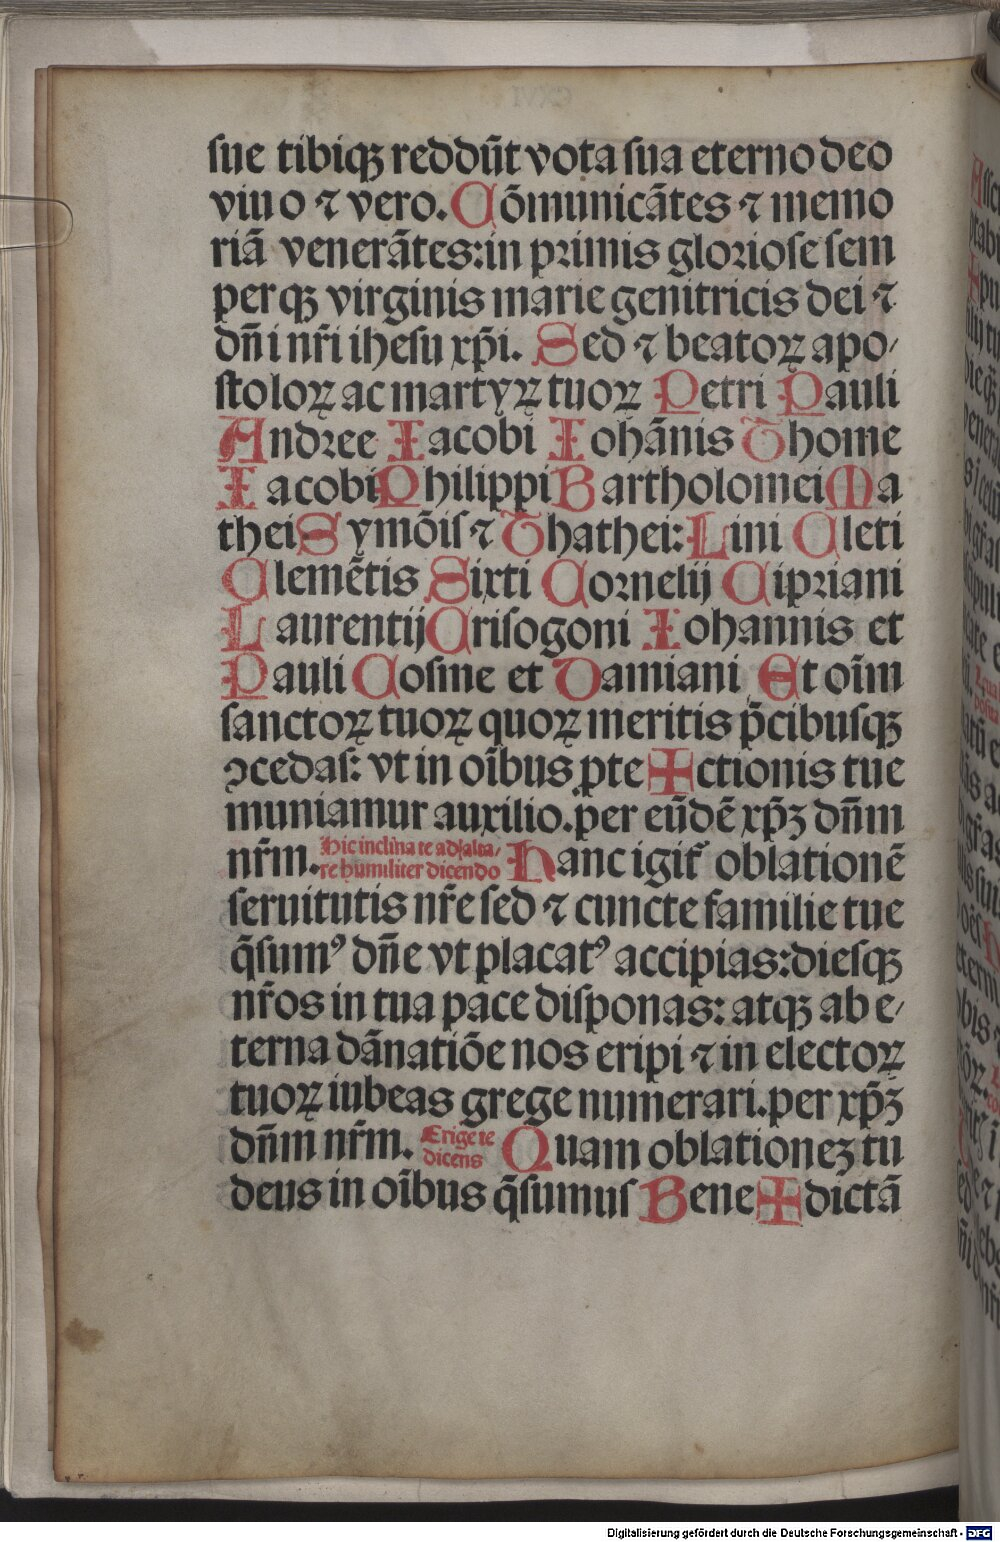 sue tibiqꝫ reddūt vota sua eterno deo
viuo ⁊ vero. Cōmunicātes ⁊ memo
riā venerātes: in primis gloriose sem
perqꝫ virginis marie genitricis dei ⁊
dn̄i nr̄i ihesu xp̄i. Sed ⁊ beatoꝝ apo⸗
stoloꝝ ac martyꝝ tuoꝝ Petri Pauli
Andree Iacobi Iohānis Thome
Iacobi Philippi Bartholomei Ma
thei Symōis ⁊ Thathei: Lini Cleti
Clemētis Sixti Cornelij Cipriani
Laurentij Crisogoni Iohannis et
Pauli Cosme et Damiani Et oīm
sanctoꝝ tuoꝝ quoꝝ meritis p̄cibusqꝫ
ꝯcedas: vt in oībus ꝓte ✠ ctionis tue
muniamur auxilio. per eūdē xp̄ꝫ dn̄m
nr̄m. Hic inclina te ad alta⸗
re humiliter dicendo Hanc igit̄ oblationē
seruitutis nr̄e sed ⁊ cuncte familie tue
q̄sumꝰ dn̄e vt placatꝰ accipias: diesqꝫ
nr̄os in tua pace disponas: atqꝫ ab e⸗
terna dānatiōe nos eripi ⁊ in electoꝝ
tuoꝝ iubeas grege numerari. per xp̄ꝫ
dn̄m nr̄m. Erige te
dicens Quam oblationeꝫ tu
deus in oībus q̄sumus Bene ✠ dictā
Digitalisierung gefördert durch die Deutsche Forschungsgemeinschaft - DFG